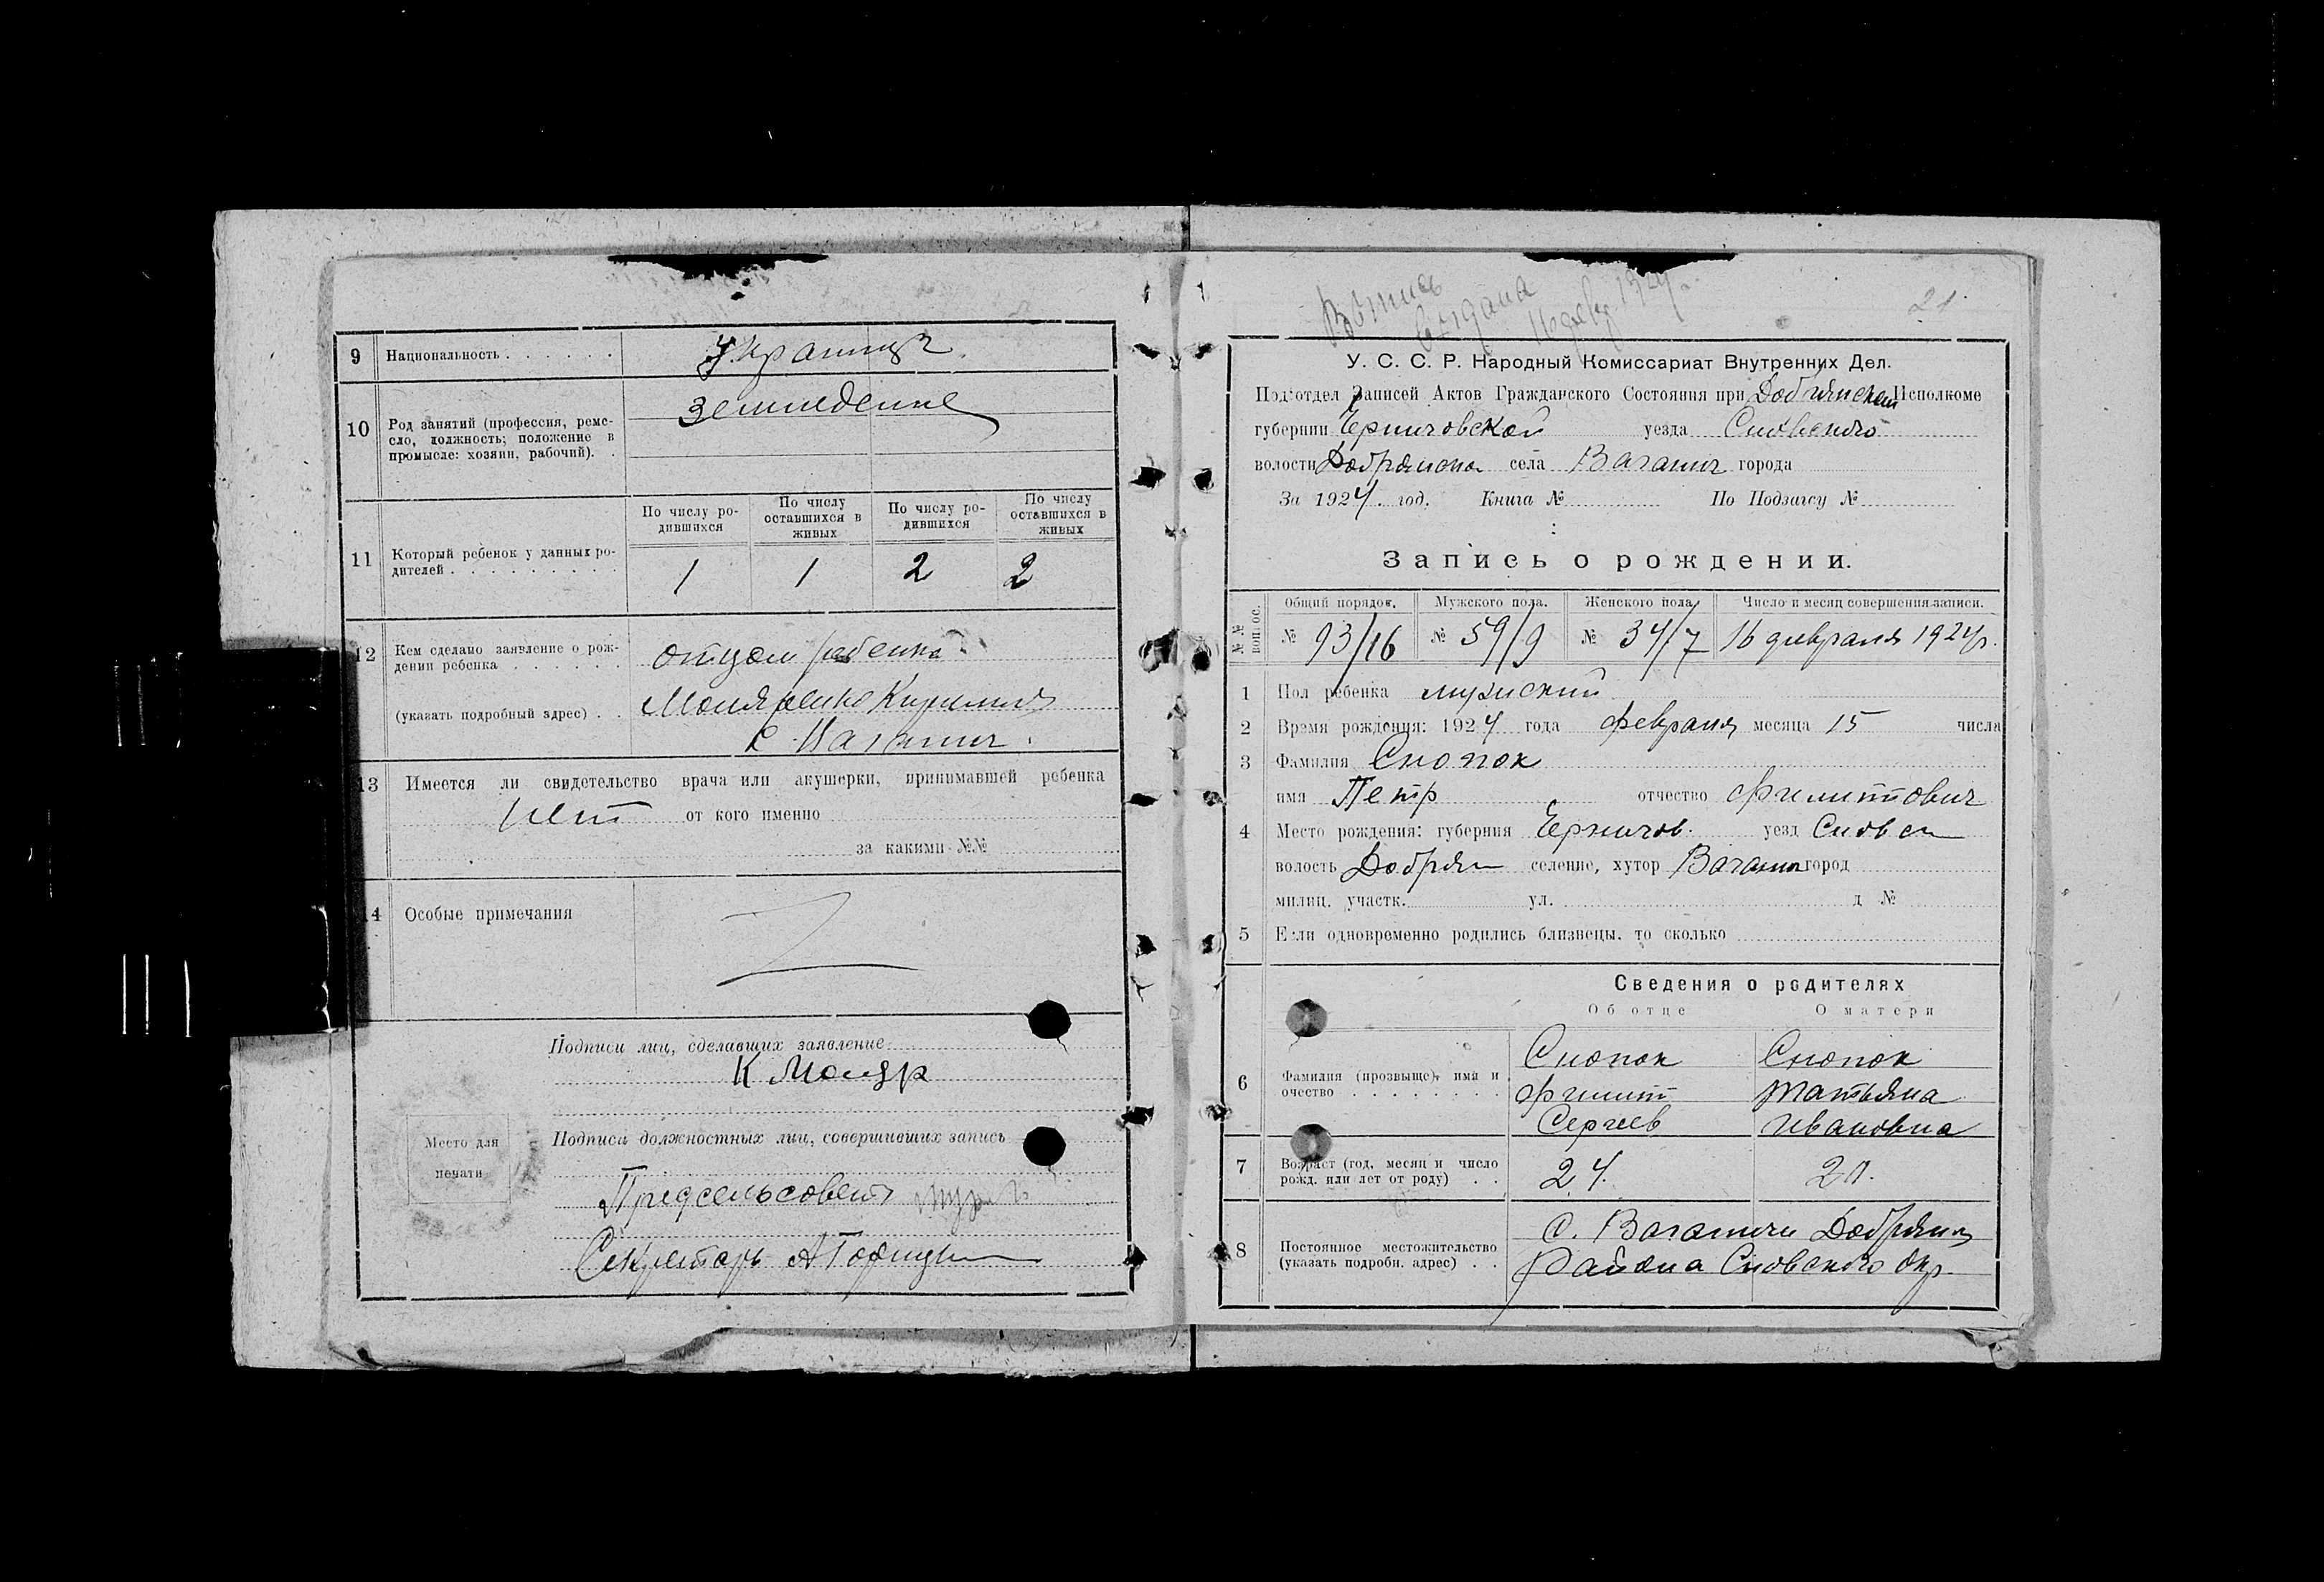 9 Национальность . . . . . . Украинцы
10 Род занятий (профессия, ремесло, должность; положение в промысле: хозяин, рабочий). . Земледелие
По числу родившихся
По числу оставшихся в живых
По числу родившихся
По числу оставшихся в живых
11 Который ребенок у данных родителей . . . . . . . . . 1 1 2 2
12 Кем сделано заявление о рождении ребенка . . . . . . отцом ребенка
(указать подробный адрес) . .
13 Имеется ли свидетельство врача или акушерки, принимавшей ребенка
нет от кого именно
за какими №№
14 Особые примечания
Подписи лиц, сделавших заявление
К Моляр
Место для печати
Подписи должностных лиц, совершивших запись
Предсельсовета
Секретарь
Выпись
выдана
21
У. С. С. Р. Народный Комиссариат Внутренних Дел.
Под'отдел Записей Актов Гражданского Состояния при Добрянском Исполкоме
губернии Черниговской уезда Сновского
волости Добрянской села Ваганич города
За 1924 год. Книга № По Подзагсу №
Запись о рождении.
№№ вопрос.
Общий порядок. Мужского пола. Женского пола. Число и месяц совершения записи.
№ 93/16 № 59/9 № 34/7 16 февраля 1924 г.
1 Пол ребенка мужской
2 Время рождения: 1924 года февраля месяца 15 числа
3 Фамилия Снопок
имя Петр отчество Филиппович
4 Место рождения: губерния Чернигов. уезд Сновск
волость Добрян селение, хутор Ваганич город
милиц. участк. ул. д №
5 Если одновременно родились близнецы, то сколько
Сведения о родителях
Об отце О матери
6 Фамилия (прозвыще), имя и очество . . . . . . . . Снопок Снопок
Филипп Татьяна
Сергеев Ивановна
7 Возраст (год, месяц и число рожд. или лет от роду) . . 24. 21.
8 Постоянное местожительство (указать подробн. адрес) . . С. Ваганичи Добрянск
Района Сновского Окр.